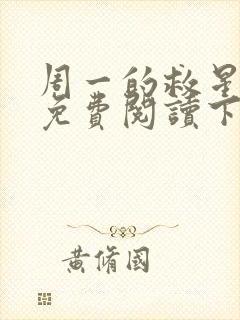 周一的救星
免費閱讀下
黃脩國